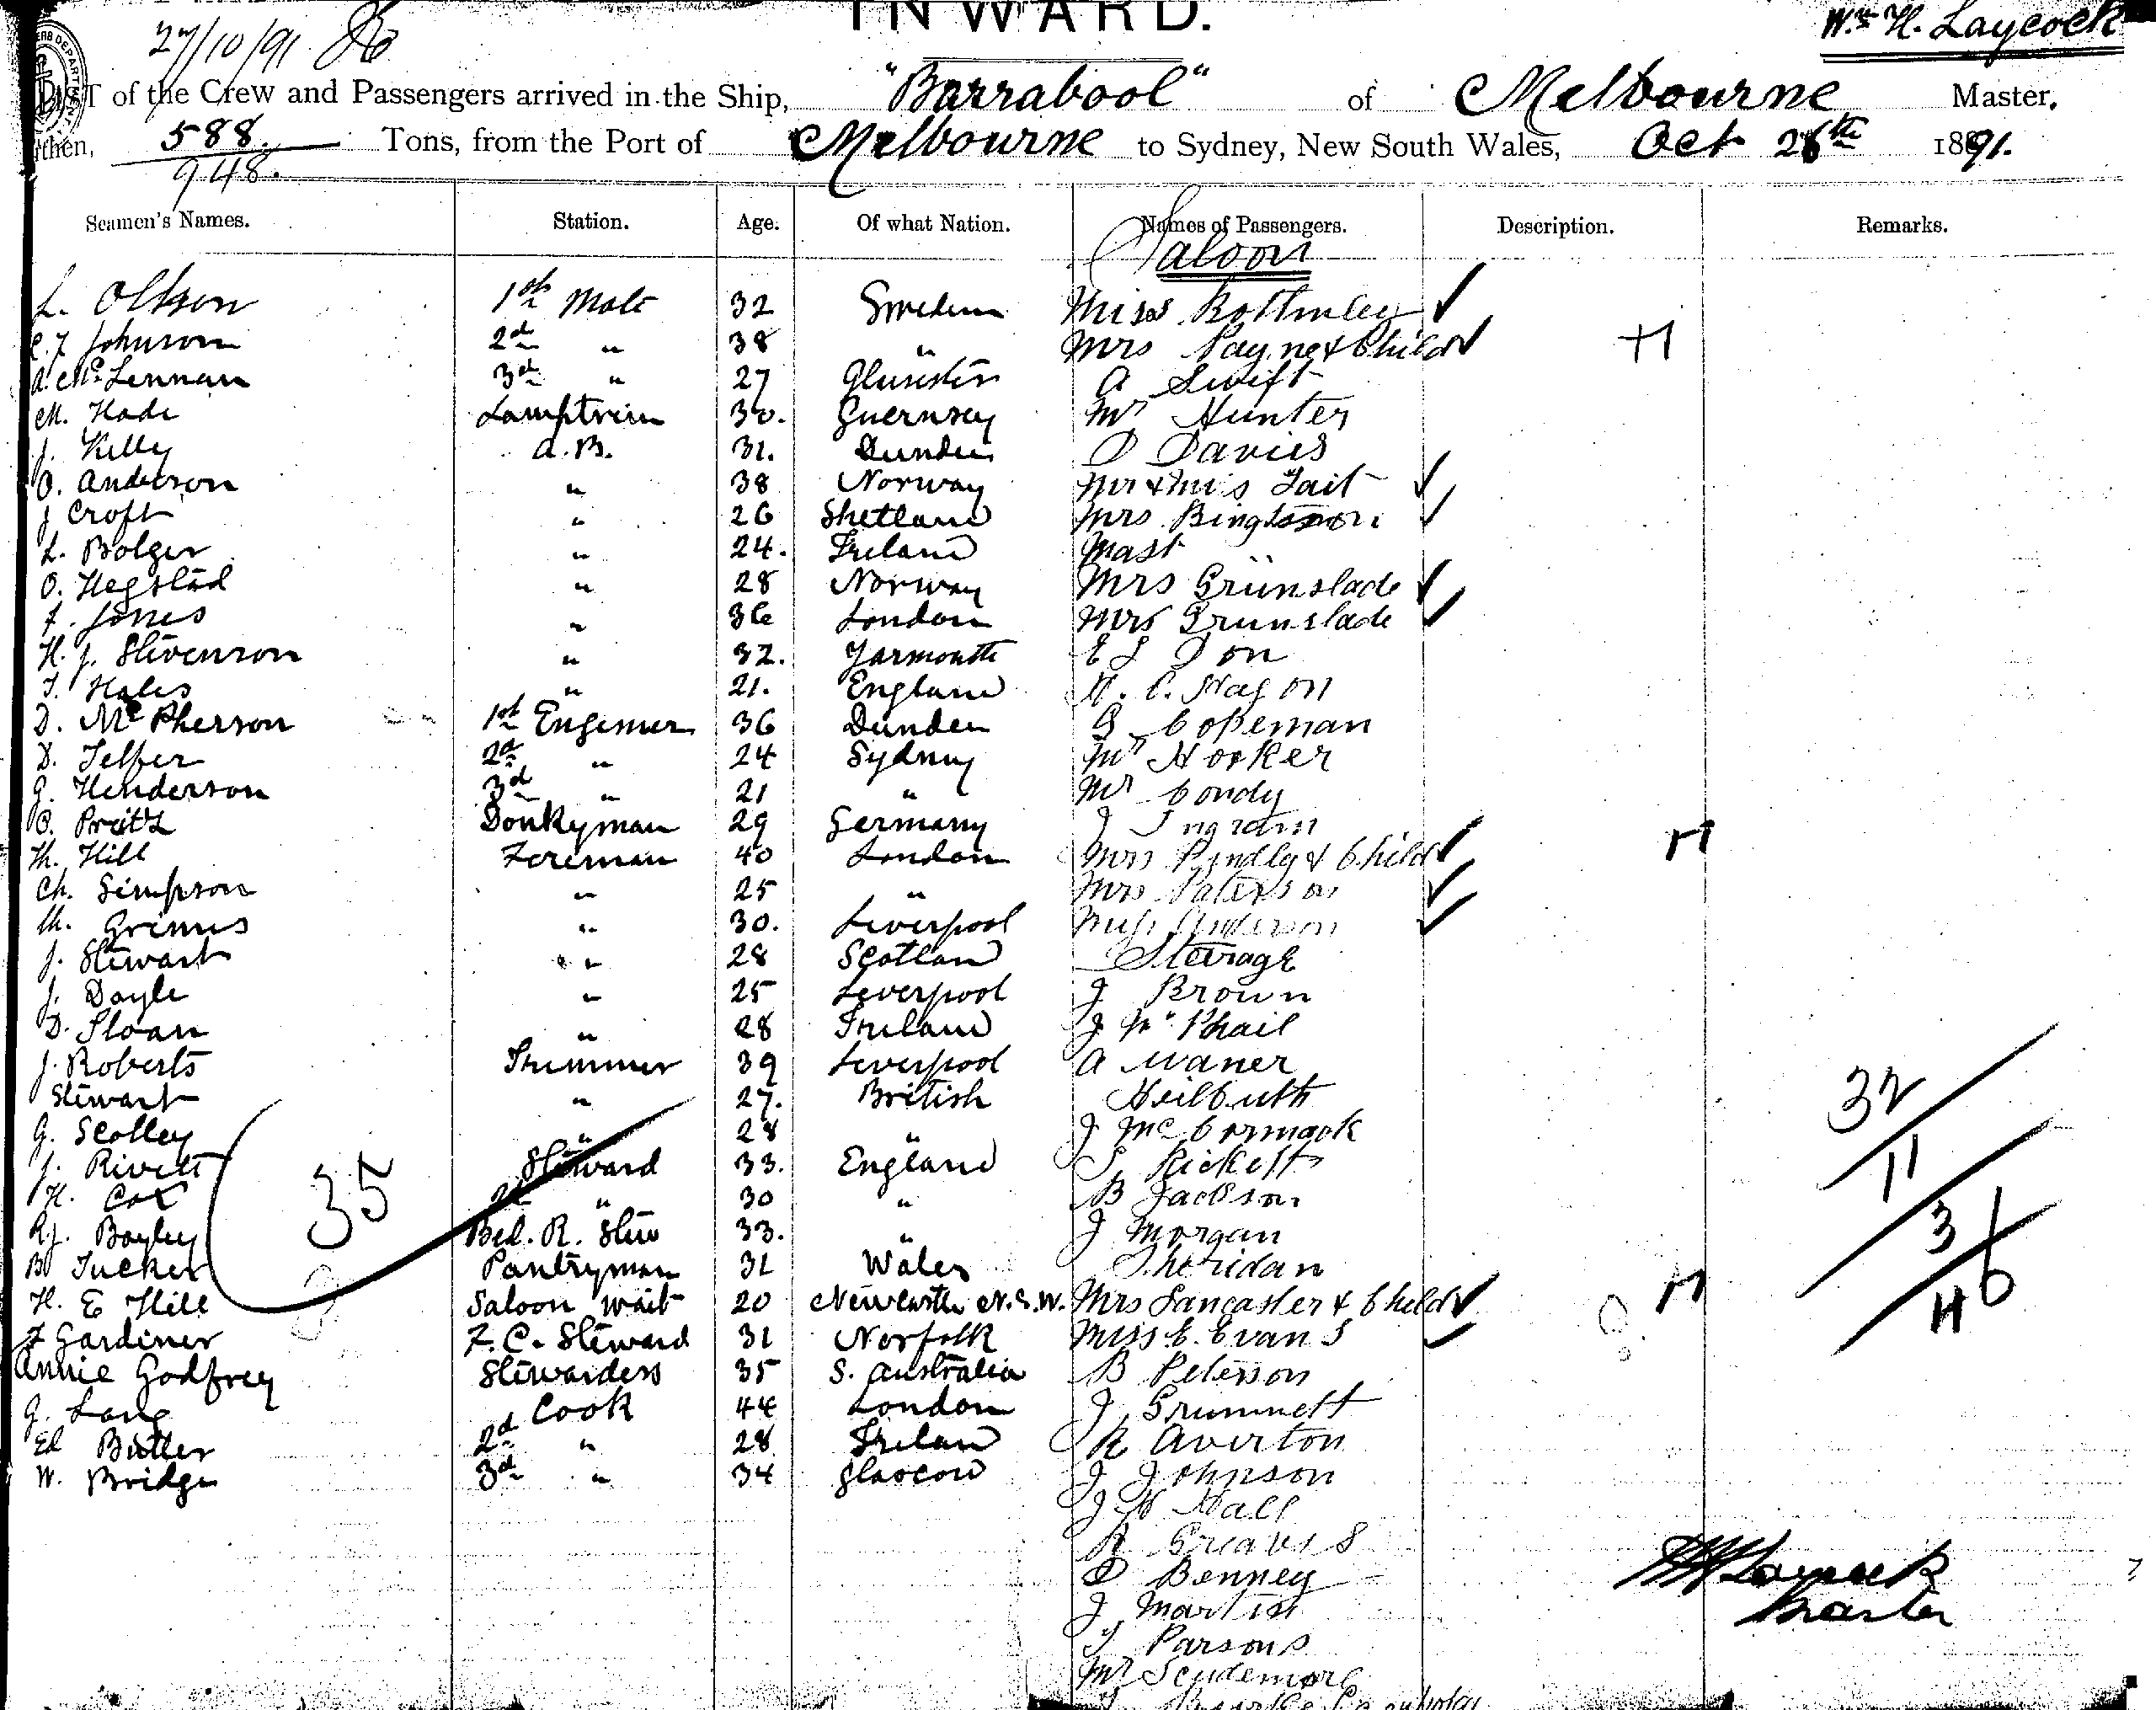 INWARD.
27/10/91
Wm H. Laycock
LIST of the Crew and Passengers arrived in the Ship, "Barrabool" of Melbourne Master,
Burthen, 588. Tons, from the Port of Melbourne to Sydney, New South Wales, Oct 26th 1891.
948.
Seamen's Names. Station. Age. Of what Nation. Names of Passengers. Description. Remarks.
Saloon
L. Olsson 1st Mate 32 Sweden Miss Bottmley
C. J. Johnson 2d " 38 " Mrs Payne & Child +1
A. McLennan 3d " 27 A Swift
M. Hade Lamptrim 30. Guernsey Mr Hunter
J. Kelly A.B. 31. Dundee D Davies
O. Anderson " 38 Norway Mr & Mis Tait
J Croft " 26 Shetland Mrs
L. Bolger " 24. Ireland Mast
O. Hegstad " 28 Norway Mrs Grünslade
F. Jones " 36 London Mrs Grunslade
H. J. Stevenson " 32. Yarmouth
T. Hales " 21. England
D. McPherson 1st Engineer 36 Dundee G Copeman
D. Telfer 2d " 24 Sydney Mr Hooker
G. Henderson 3d " 21 " Mr Condy
Donkyman 29 Germany J Ingram
Th. Hill Fireman 40 London Mrs & Child
Ch. Simpson " 25 " Mrs Paterson
Grimes " 30. Liverpool Miss Anderson
J. Stewart " 28 Scotland Sterrage
J. Doyle " 25 Liverpool J Brown
D. Sloan " 28 Ireland J Mc Phail
J. Roberts Trimmer 39 Liverpool A
Stewart " 27. British Heilbuth
G. Scolley " 28 " J McCormack
J. Rivett Steward 33. England Ricketts
H. Cox 2d " 30 " B Jackson
R.J. Bayley Bed. R. Stew 33. " J Morgan
B Tucker Pantryman 31 Wales Sheridan
H. E Hill Saloon Wait 20 Newcastle N.S.W. Mrs Lancaster & Child
F Gardiner F. C. Steward 31 Norfolk Miss E. Evans
Annie Godfrey Stewardess 35 S. Australia B Peterson
G. Lang Cook 44 London J. Grummett
Ed Butler 2d " 28 Ireland R Averton
W. Bridge 3d " 34 Glascow J Johnson
J H Hall
R Greaves
D Benney
J Martin
J Parsons
Mr Scudemore
35
32
11
3
46
Laycock
Master